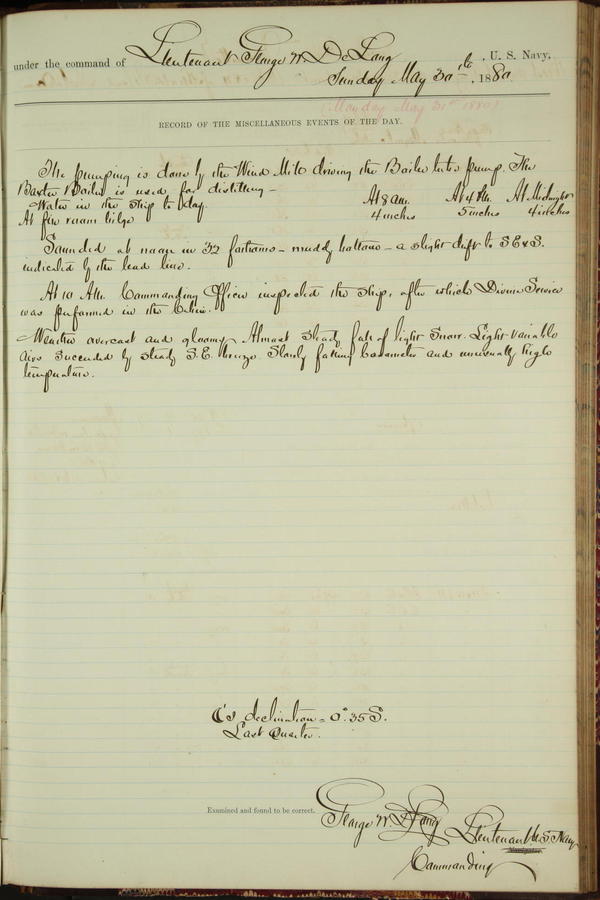 under the command of Lieutenant George W. De Long, U. S. Navy,
Sunday May 30th, 1880
(Monday May 31st 1880)
RECORD OF THE MISCELLANEOUS EVENTS OF THE DAY.
The pumping is done by the Wind Mill driving the Boiler tube pump. The
Baxter Boiler is used for distilling—
Water in the Ship to day. At 8 am. At 4 PM. At Midnight
At fire room bilge 4 inches 5 inches 4 inches
Sounded at noon in 32 fathoms - muddy bottom - a slight drift to SE&S.
indicated by the lead line.
At 10 AM. Commanding Officer inspected the ship, after which Divine Service
was performed in the Cabin.
Weather overcast and gloomy. Almost steady fall of light Snow. Light variable
airs succeeded by steady S.E. breeze. Slowly falling barometer and unusually high
temperature.
☾'s declination = 0° 35 S.
Last Quarter.
Examined and found to be correct.
George W. De Long Lieutenant U.S. Navy
Commanding